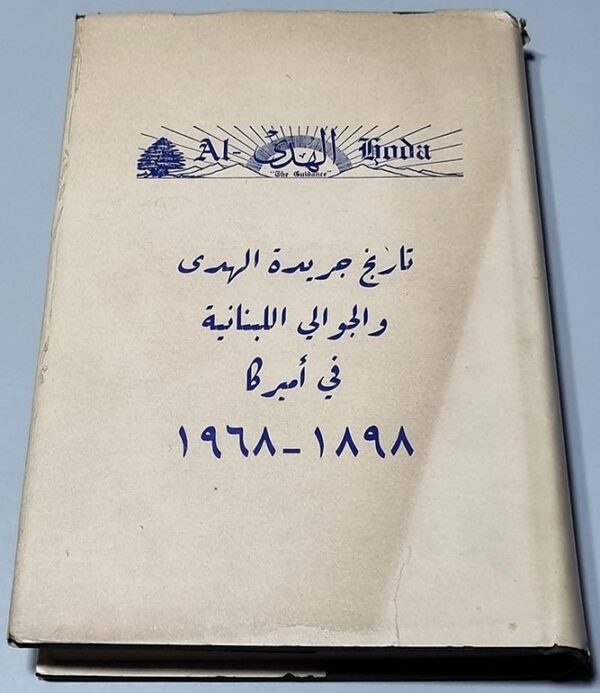 Al الهدى Hoda
"The Guidance"
تاريخ جريدة الهدى
والجوالي اللبنانية
في أميركا
١٨٩٨-١٩٦٨